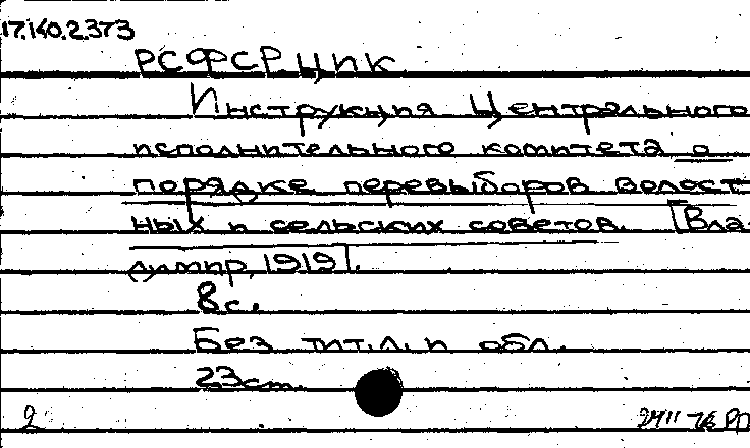 17.140.2.373
РСФСР ЦИК
Инструкция Центрального
исполнительного комитета о
порядке перевыборов волост-
ных и сельских советов. [Вла-
димир, 1919].
8 с.
Без тит. л. и обл.
23 см.
2